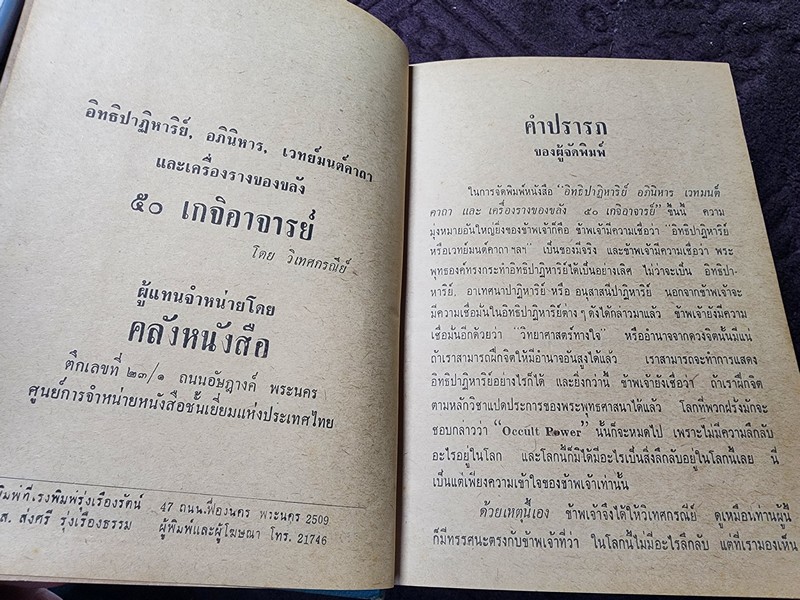 อิทธิปาฏิหาริย์, อภินิหาร, เวทย์มนต์คาถา
และเครื่องรางของขลัง
๕๐ เกจิอาจารย์
โดย วิเทศกรณีย์
ผู้แทนจำหน่ายโดย
คลังหนังสือ
ตึกเลขที่ ๒๓/๑ ถนนอัษฎางค์ พระนคร
ศูนย์การจำหน่ายหนังสือชั้นเยี่ยมแห่งประเทศไทย
พิมพ์ที่.รงพิมพ์รุ่งเรืองรัตน์ 47 ถนน.ฟื่องนคร พระนคร 2509
ส. ส่งศรี รุ่งเรืองธรรม ผู้พิมพ์และผู้โฆษณา โทร. 21746
คำปรารภ
ของผู้จัดพิมพ์
ในการจัดพิมพ์หนังสือ "อิทธิปาฏิหาริย์ อภินิหาร เวทมนต์
คาถา และ เครื่องรางของขลัง ๕๐ เกจิอาจารย์" ขึ้นนี้ ความ
มุ่งหมายอันใหญ่ยิ่งของข้าพเจ้าก็คือ ข้าพเจ้ามีความเชื่อว่า "อิทธิปาฏิหาริย์
หรือเวทย์มนต์คาถา ฯลฯ" เป็นของมีจริง และข้าพเจ้ามีความเชื่อว่า พระ
พุทธองค์ทรงกระทำอิทธิปาฏิหาริย์ได้เป็นอย่างเลิศ ไม่ว่าจะเป็น อิทธิปา-
หาริย์, อาเทศนาปาฏิหาริย์ หรือ อนุสาสนีปาฏิหาริย์ นอกจากข้าพเจ้าจะ
มีความเชื่อมั่นในอิทธิปาฏิหาริย์ต่าง ๆ ดังได้กล่าวมาแล้ว ข้าพเจ้ายังมีความ
เชื่อมั่นอีกด้วยว่า "วิทยาศาสตร์ทางใจ" หรืออำนาจจากดวงจิตนั้นมีแน่
ถ้าเราสามารถฝึกจิตให้มีอำนาจอันสูงได้แล้ว เราสามารถจะทำการแสดง
อิทธิปาฏิหาริย์อย่างไรก็ได้ และยิ่งกว่านี้ ข้าพเจ้ายังเชื่อว่า ถ้าเราฝึกจิต
ตามหลักวิชาแปดประการของพระพุทธศาสนาได้แล้ว โลกที่พวกฝรั่งมักจะ
ชอบกล่าวว่า "Occult Power" นั้นก็จะหมดไป เพราะไม่มีความลึกลับ
อะไรอยู่ในโลก และโลกนี้ก็มิได้มีอะไรเป็นสิ่งลึกลับอยู่ในโลกนี้เลย นี่
เป็นแต่เพียงความเข้าใจของข้าพเจ้าเท่านั้น
ด้วยเหตุนี้เอง ข้าพเจ้าจึงได้ให้วิเทศกรณีย์ ดูเหมือนท่านผู้นี้
ก็มีทรรศนะตรงกับข้าพเจ้าที่ว่า ในโลกนี้ไม่มีอะไรลึกลับ แต่ที่เรามองเห็น